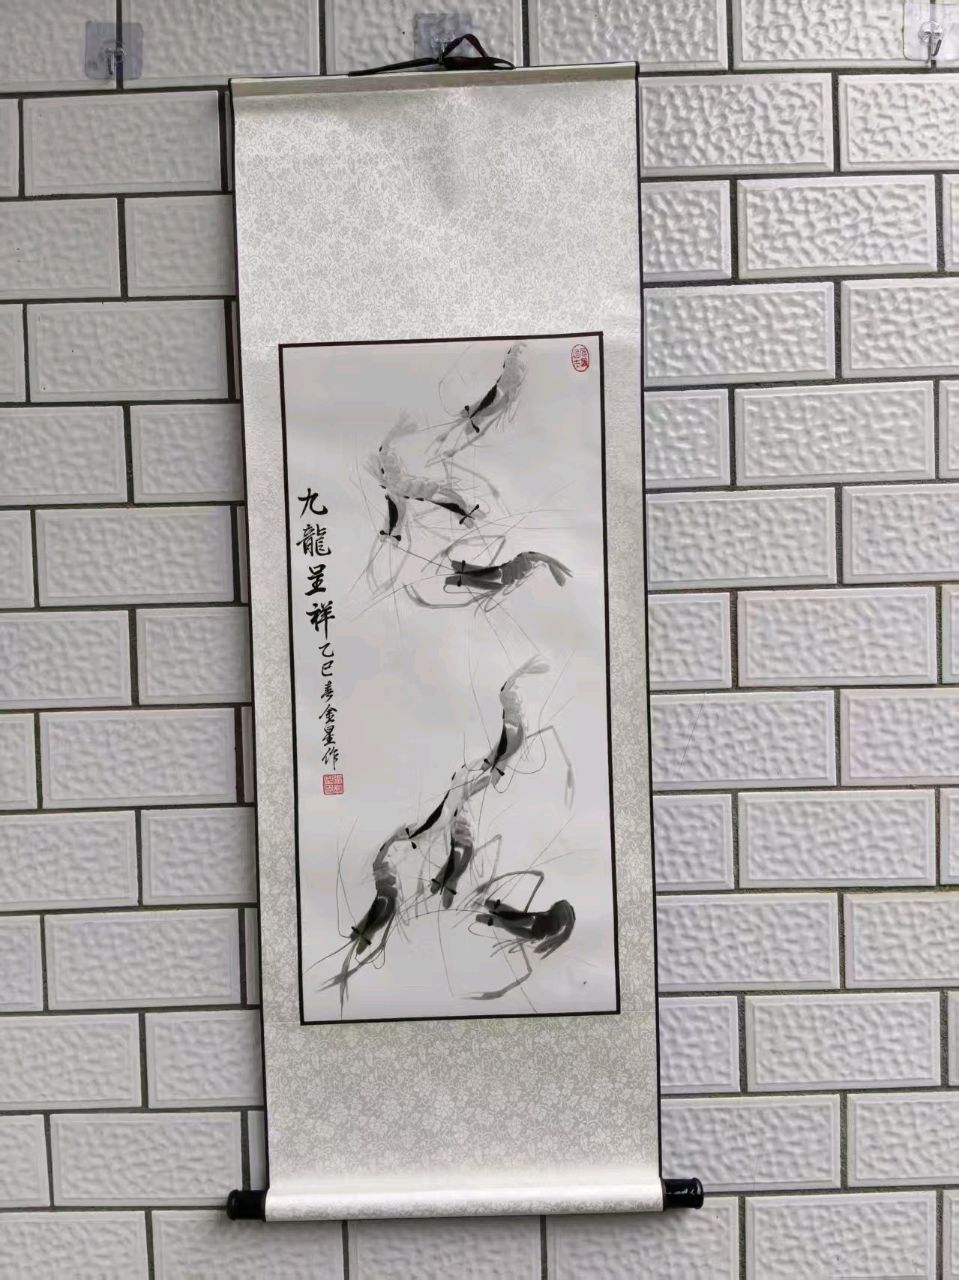 九龍呈祥
乙巳春金星作